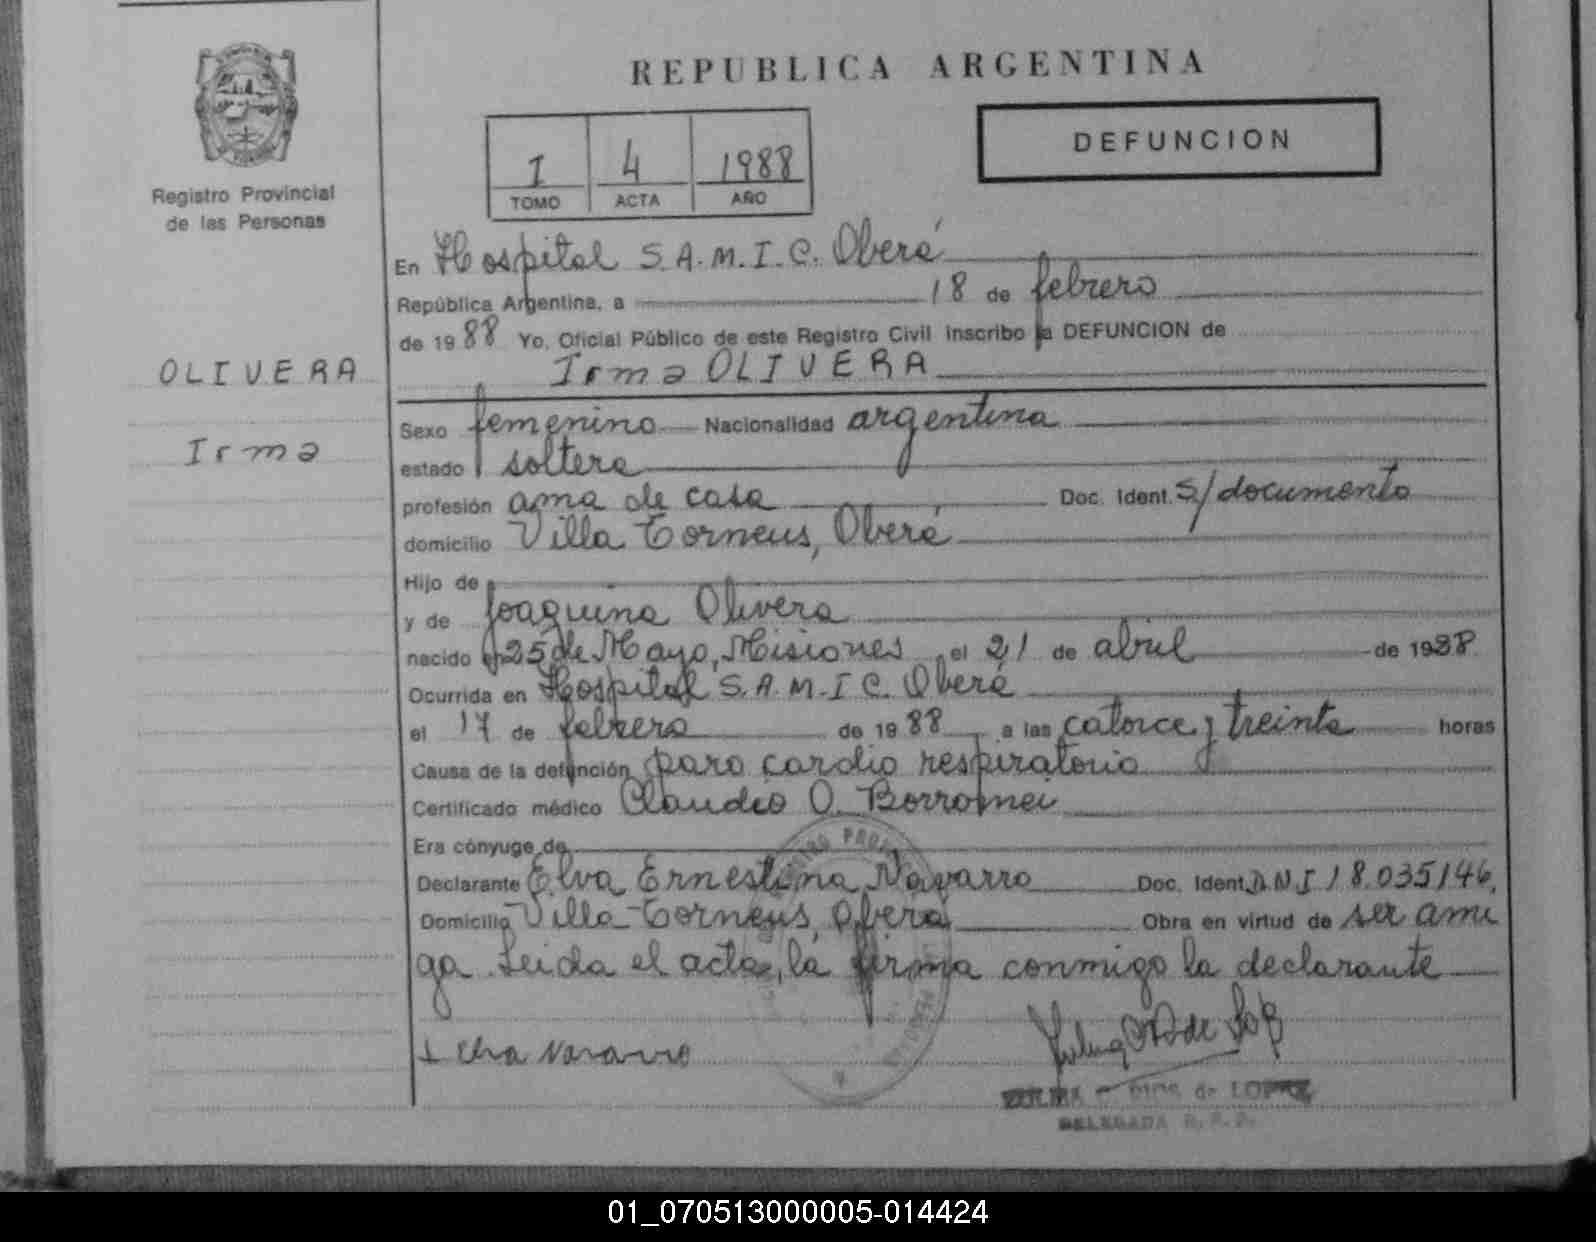 REPUBLICA ARGENTINA
Registro Provincial
de las Personas
1 4 1988
TOMO ACTA AÑO
DEFUNCION
En Hospital S.A.M.I.C. Oberá
República Argentina, a 18 de febrero
de 1988 Yo, Oficial Público de este Registro Civil inscribo la DEFUNCION de
Irma OLIVERA
OLIVERA
Irma
Sexo femenino Nacionalidad argentina
estado soltera
profesión ama de casa Doc. Ident. S/documento
domicilio Villa Torneus, Oberá
Hijo de
y de Joaquina Olivera
nacido en 25 de Mayo, Misiones el 21 de abril de 19
Ocurrida en Hospital S.A.M.I.C. Oberá
el 17 de febrero de 1988 a las catorce y treinta horas
Causa de la defunción paro cardio respiratorio
Certificado médico Claudio O. Borromei
Era cónyuge de
Declarante Elva Ernestina Navarro Doc. Ident. D.N.I 18.035146,
Domicilio Villa Torneus, Oberá Obra en virtud de ser ami
ga. Leida el acta, la firma conmigo la declarante
Elva Navarro
de LOPEZ
DELEGADA R.P.P.
01_070513000005-014424